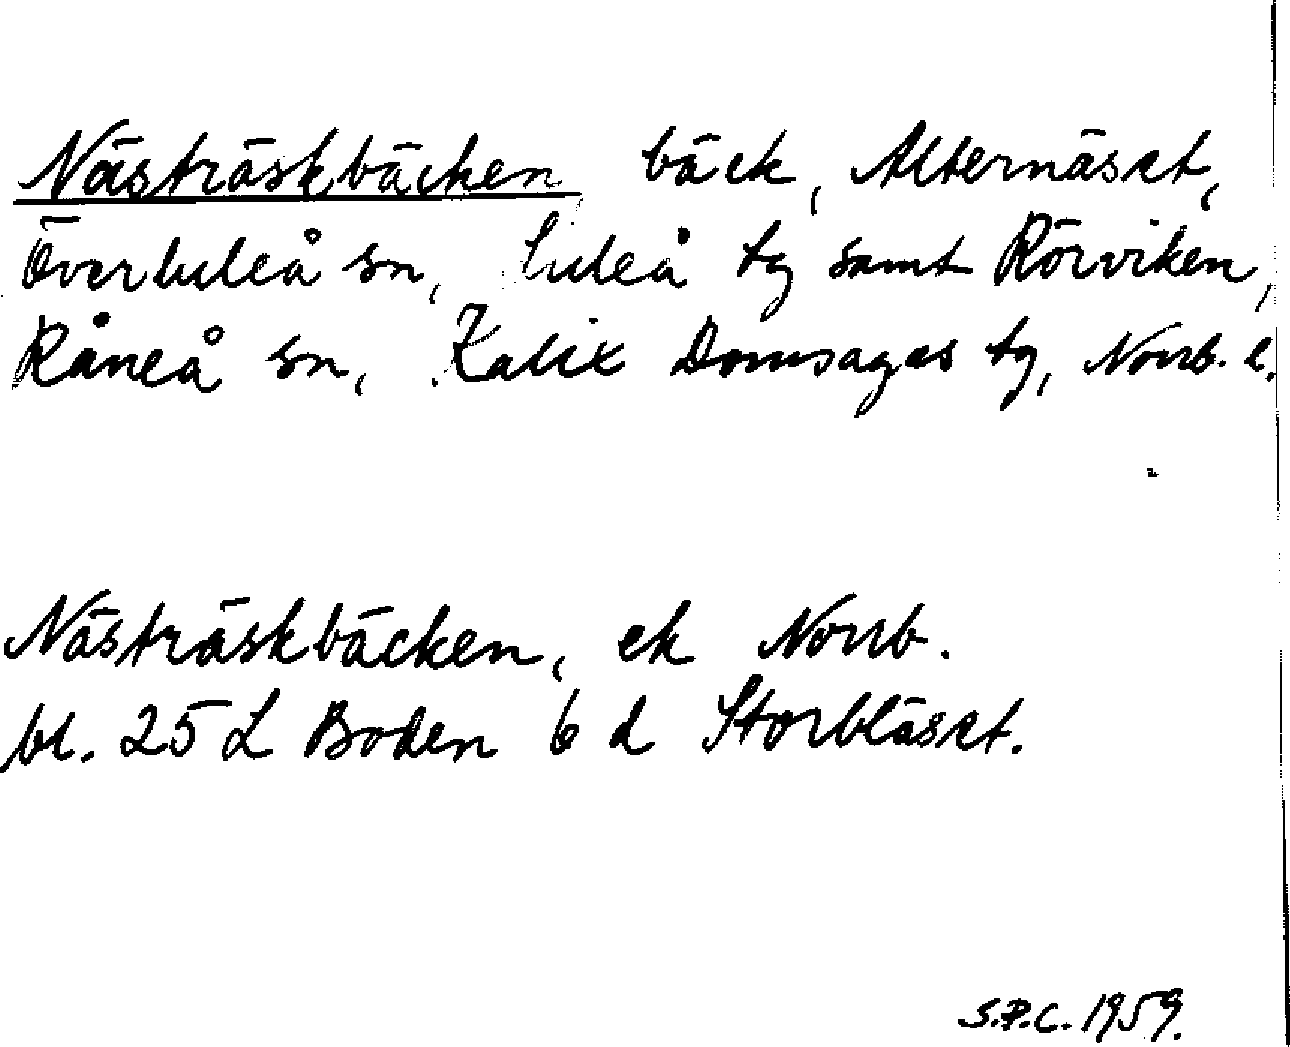 Nästräskbäcken bäck, Alternäset,
Överluleå sn, Luleå tg samt Rörviken,
Råneå sn, Kalix Domsagas tg, Norrb. l.
Nästräskbäcken, ek Norrb.
bl. 25 L Boden 6 d Storblåset.
S.P.C. 1959.